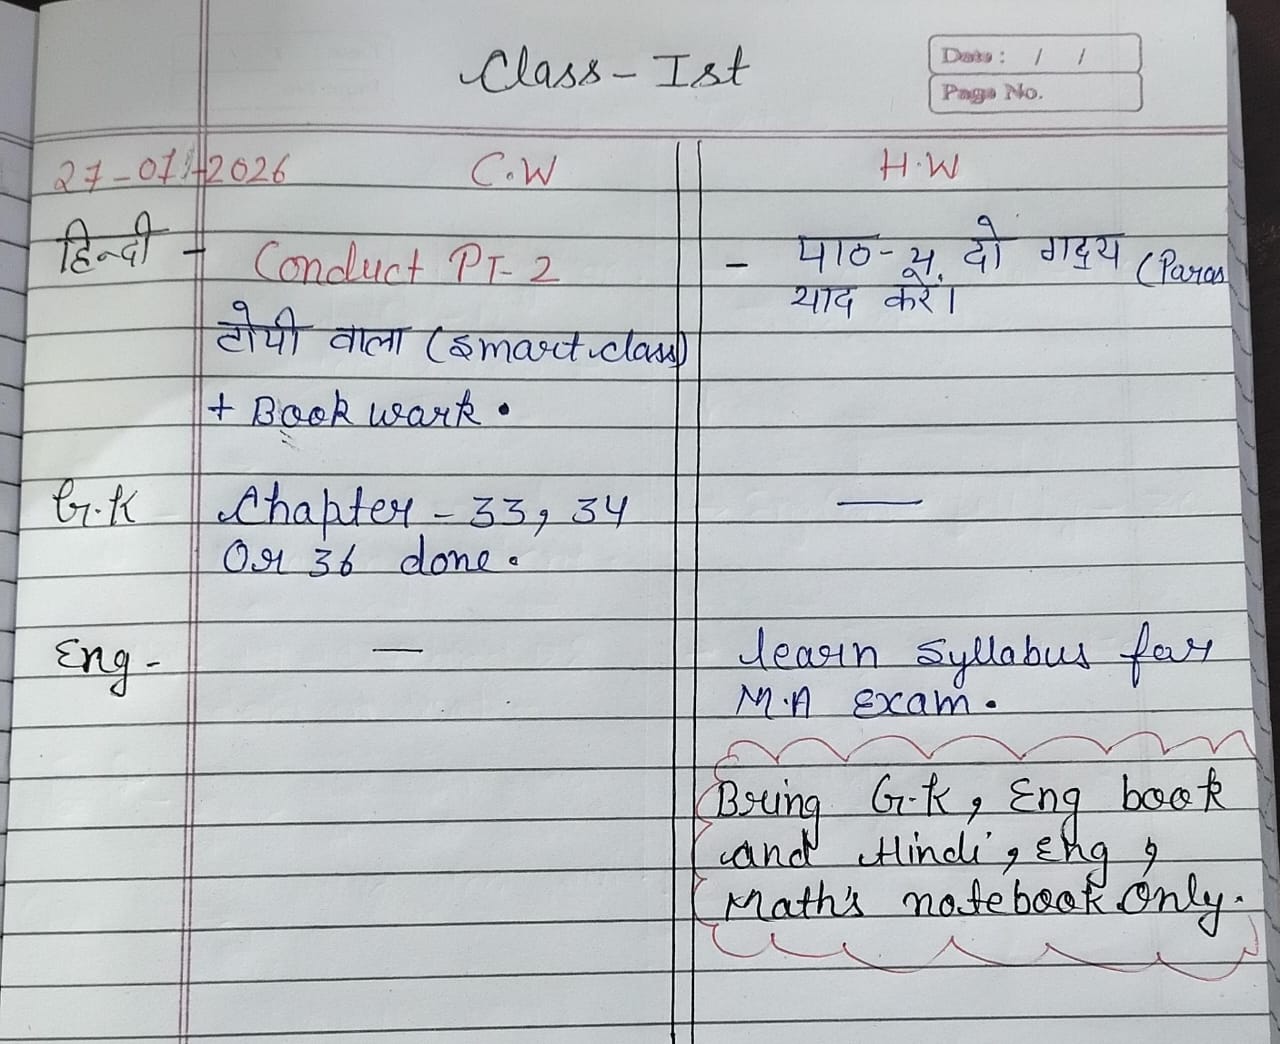 Class - Ist
Date : / /
Page No.
27-07-2026 C.W H.W
हिन्दी - Conduct PT-2 - पाठ-4, दो गद्दय (Paras
याद करें।
टोपी वाला (smart class)
+ Book wark.
G.K Chapter - 33, 34 —
Or 36 done.
Eng - — learn syllabus for
M.A Exam.
Bring G.K, Eng book
and Hindi, Eng,
Math's notebook Only.